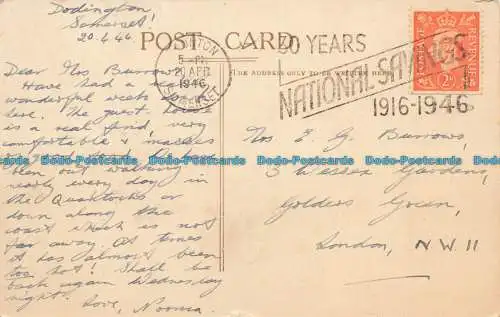 Dodington
Somerset!
20.4.46
Dear Mrs Burrows,
Have had a real
wonderful week down
here. The guest house
is a real find, very
comfortable &
been out walking
nearly every day in
the Quantocks or
down along the
coast which is not
far away. At times
it has almost been
too hot! Shall be
back again Wednesday
night.
Love, Noorna.
POST CARD
THE ADDRESS ONLY TO BE WRITTEN HERE
5-PM
20 APR
1946
SOMERSET
30 YEARS
NATIONAL SAVINGS
1916-1946
POSTAGE
REVENUE
2D
Mrs E. G. Burrows,
3 Wessex Gardens,
Golders Green,
London, N.W.11
Dodo-Postcards.com
Dodo-Postcards.com
Dodo-Postcards.com
Dodo-Postcards.com
Dodo-Postcards.com